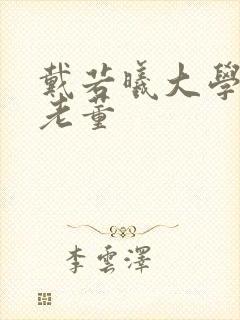 戴若曦大學
老董
李雲澤